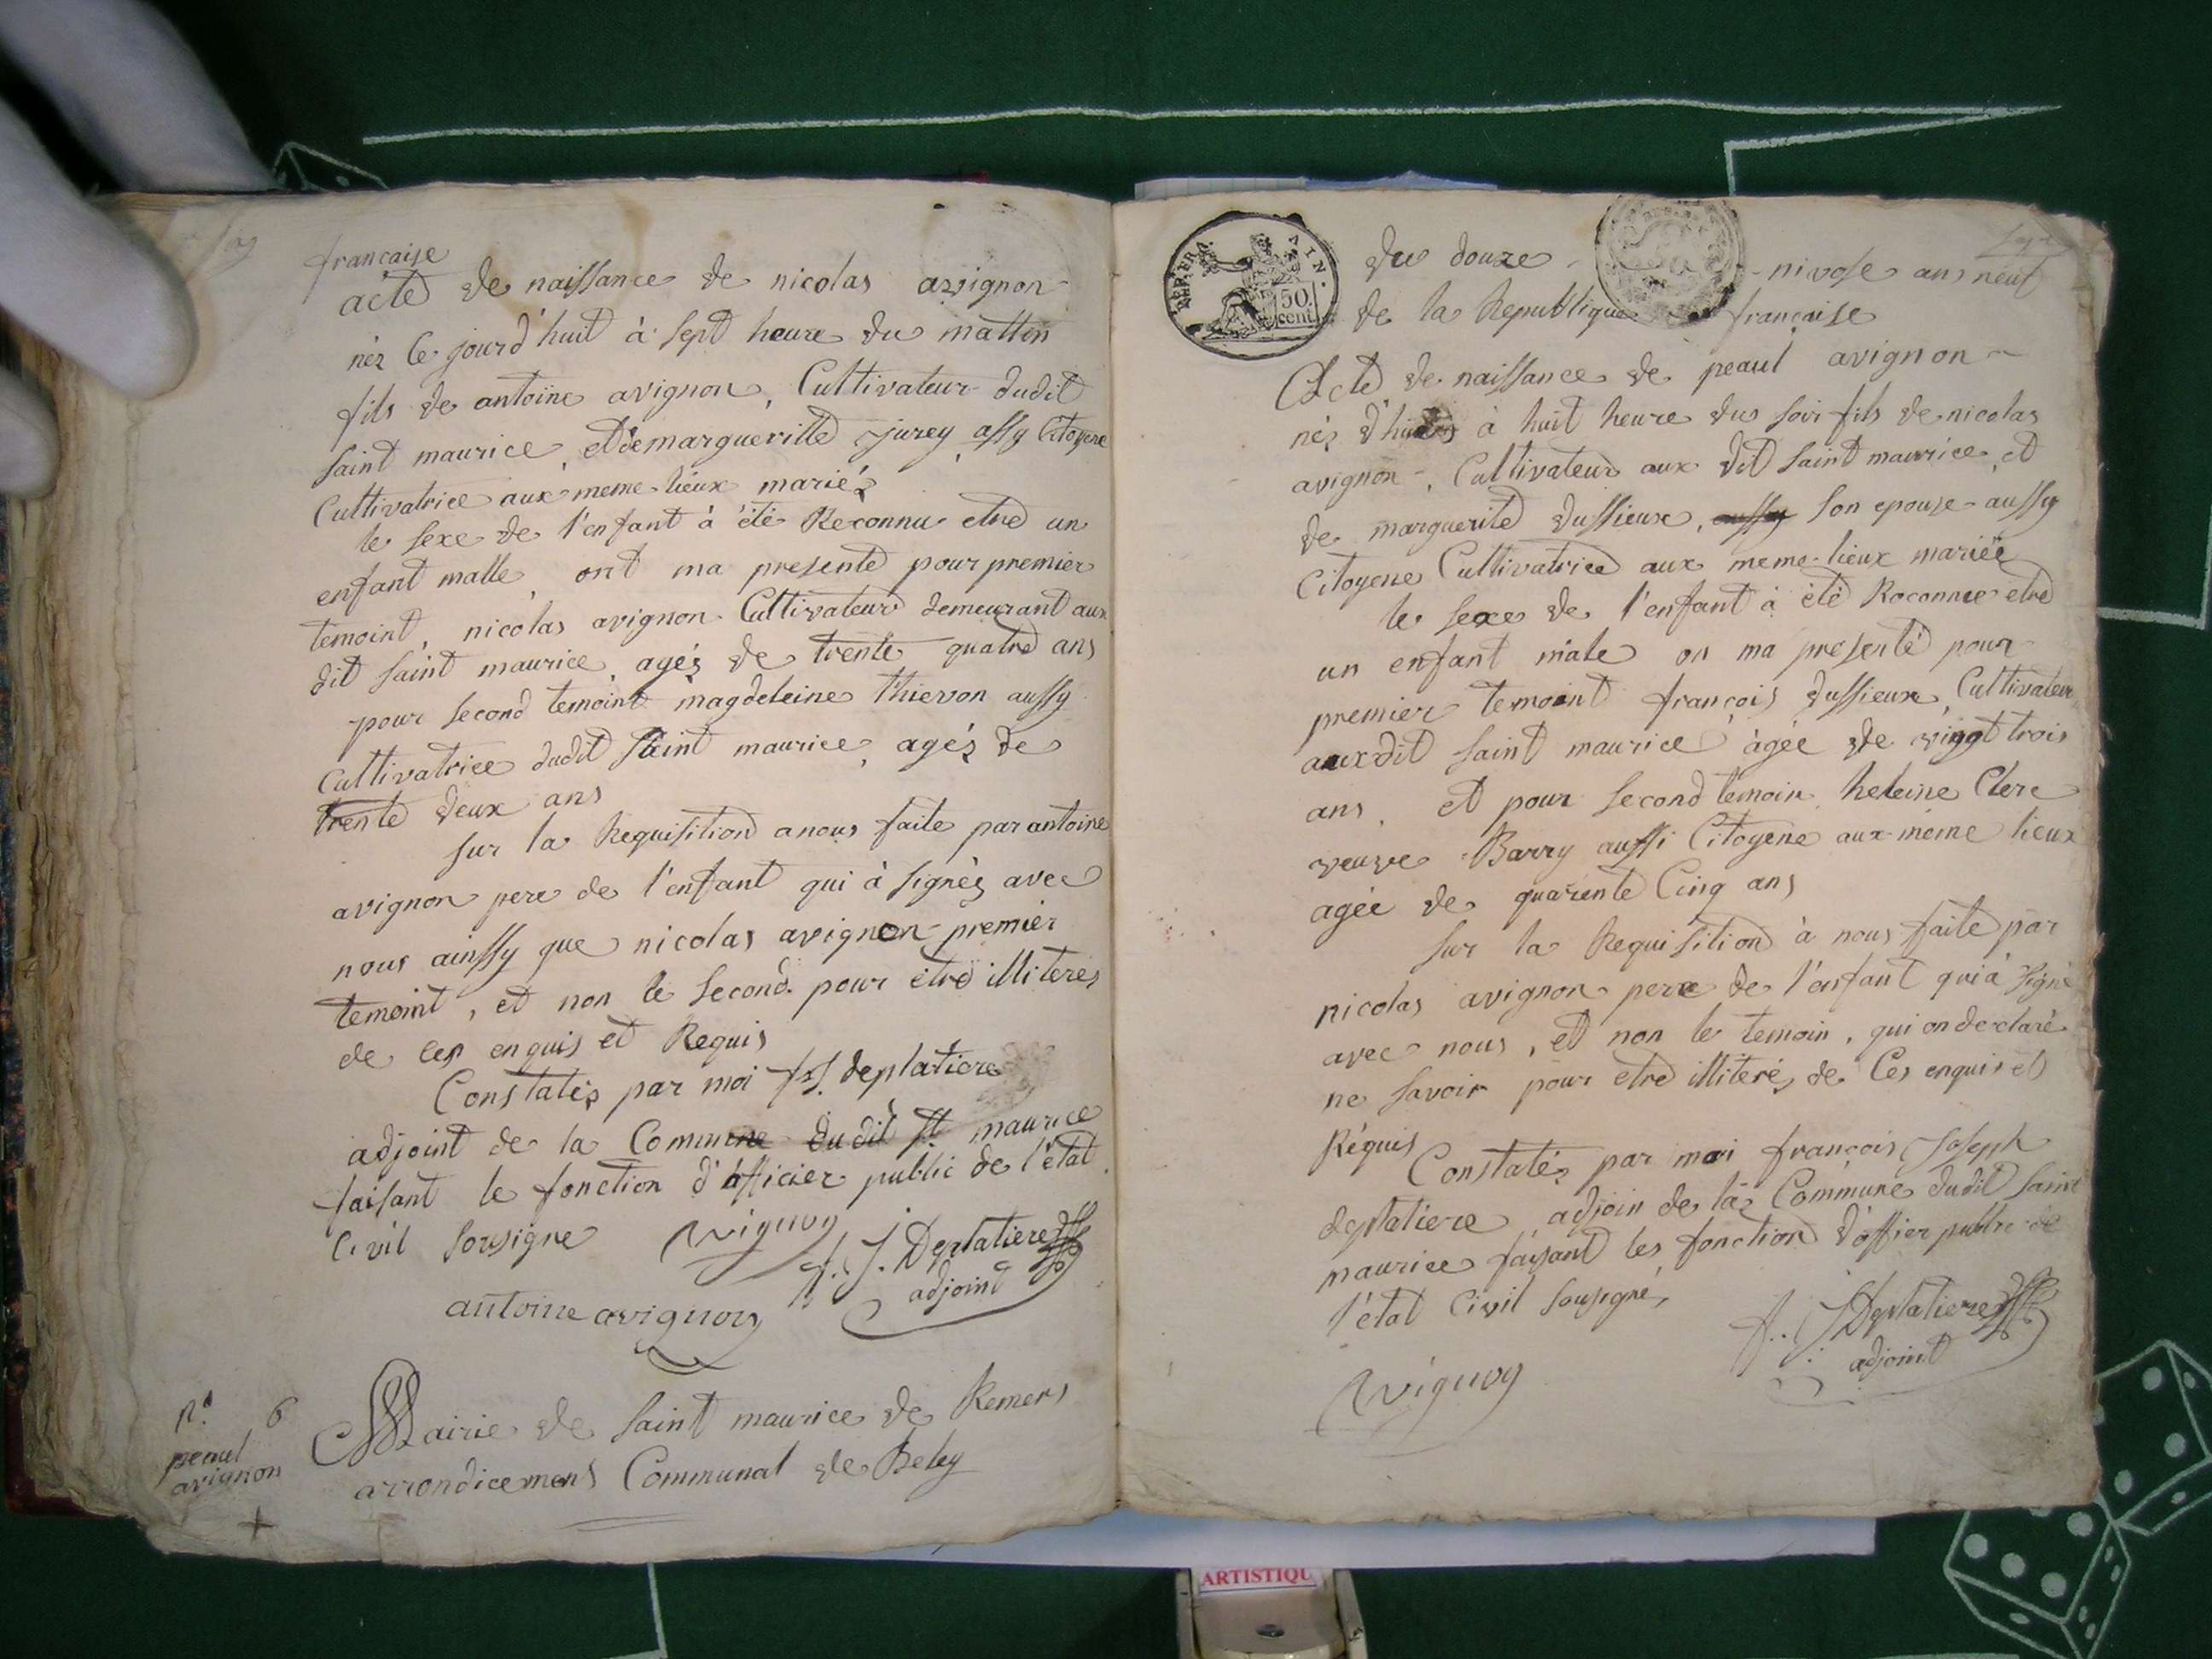 francaise
acte de naissance de nicolas avignon
nez le jourd'huit à sept heure du mattin
fils de antoine avignon, Cultivateur dudit
saint maurice, et de margueritte jurey assy Citoyene
Cultivatrice aux meme lieux mariéz
le sexe de l'enfant à été Reconnu etre un
enfant malle, ont ma presenté pour premier
temoint, nicolas avignon Cultivateur demeurant aux
dit saint maurice, agéz de trente quatre ans
pour second temoint magdeleine thievon aussy
Cultivatrice dudit saint maurice, agéz de
trente deux ans
sur la Requisition a nous faite par antoine
avignon pere de l'enfant qui à signéz avec
nous ainssy que nicolas avignon premier
temoint, et non le second pour etre illiteres
de ces enquis et Requis
Constatéz par moi f. J. deplatiere
adjoint de la Commune dudit St. maurice
faisant le fonction d'officier public de l'état
Civil sousigne avignon
f. J. Deplatiere
adjoint
antoine avignon
n° 6
peaul
avignon
Mairie de saint maurice de Remens
arrondicemens Communal de Beley
DEP. DE L'AIN
50
cent.
du douze nivose ans neuf
de la Republique française
Acte de naissance de peaul avignon
néz d'hier à huit heure du soir fils de nicolas
avignon, Cultivateur aux dit saint maurice, et
de marguerite dussieux, aussy son epouze aussy
Citoyene Cultivatrice aux meme lieux mariéé
le sexe de l'enfant à été Raconnue etre
un enfant male on ma presenté pour
premier temoint françois dussieux, Cultivateur
auxdit saint maurice àgée de vingt trois
ans, et pour second temoin heleine Clerc
veuve Barry aussi Citoyene aux même lieux
agée de quarente Cinq ans
sur la Requisition à nous faite par
nicolas avignon pere de l'enfant qui à signé
avec nous, et non le temoin, qui on declaré
ne savoir pour etre illiteré, de Ces enquis et
Réquis
Constatéz par moi françois Joseph
deplatiere adjoin de la Commune dudit saint
maurice faisant les fonction d'offier public de
l'état Civil sousigné,
f.. J. Deplatiere
adjoint
avignon
ARTISTIQU